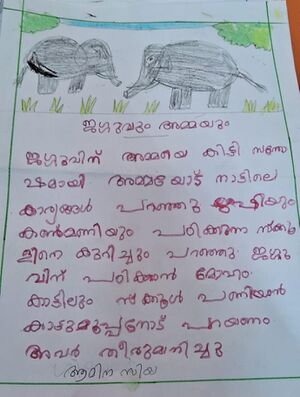 ജഗ്ഗുവും അമ്മയും
ജഗ്ഗുവിന് അമ്മയെ കിട്ടി സന്തോ
ഷമായി അമ്മയോട് നാട്ടിലെ
കാര്യങ്ങൾ പറഞ്ഞു
കൺമണിയും പഠിക്കുന്ന സ്ക്കൂ
ളിനെ കുറിച്ചും പറഞ്ഞു ജഗ്ഗു
വിന് പഠിക്കാൻ മോഹം
കാട്ടിലും സ്ക്കൂൾ പണിയാൻ
കാട്ടുമൂപ്പനോട് പറയണം
അവർ തീരുമാനിച്ചു
ആമിന സിയ